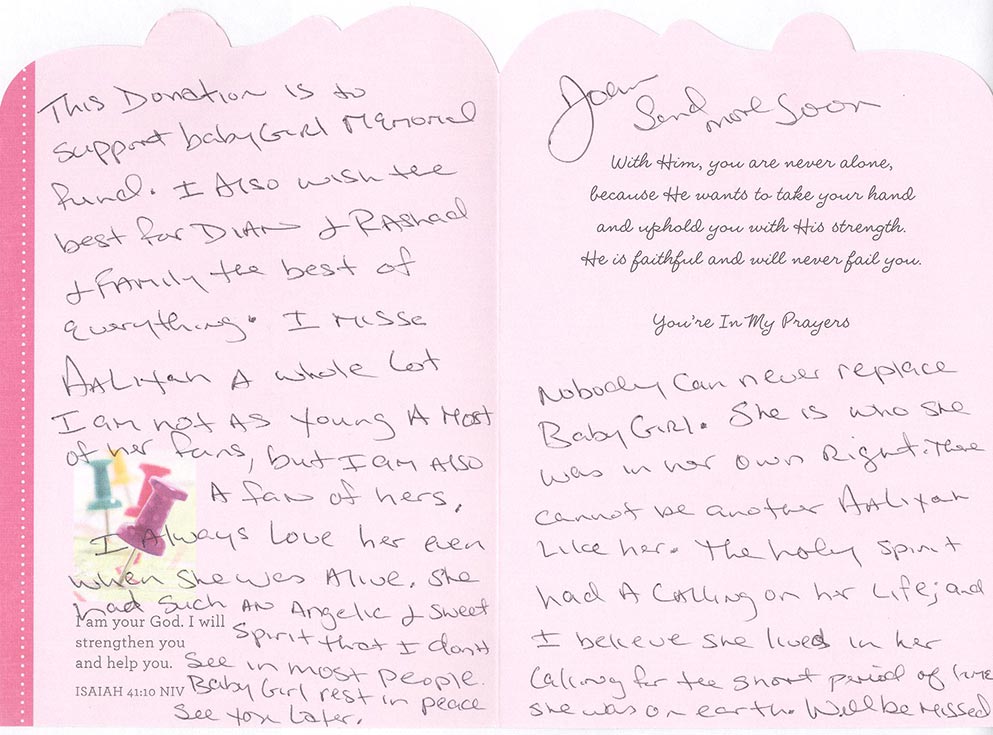 This Donation is to
support babyGirl Memorial
fund. I Also wish the
best for DIAN & RAShad
& FAMily the best of
everything. I Misse
AALiyah A whole Lot
I am not As young A Most
of her fans, but I am Also
A fan of hers.
I Always Love her even
when she was Alive. She
had such AN Angelic & Sweet
Spirit that I don't
See in most People.
Baby Girl rest in peace
See you Later.
I am your God. I will
strengthen you
and help you.
ISAIAH 41:10 NIV
Send
more Soon
With Him, you are never alone,
because He wants to take your hand
and uphold you with His strength.
He is faithful and will never fail you.
You're In My Prayers
Nobody Can never replace
Baby Girl. She is who she
was in her own Right. There
cannot be another AAliyah
Like her. The holy Spirit
had A Calling on her Life; and
I believe she lived in her
Calling for the short period of time
she was on earth. Will be Missed